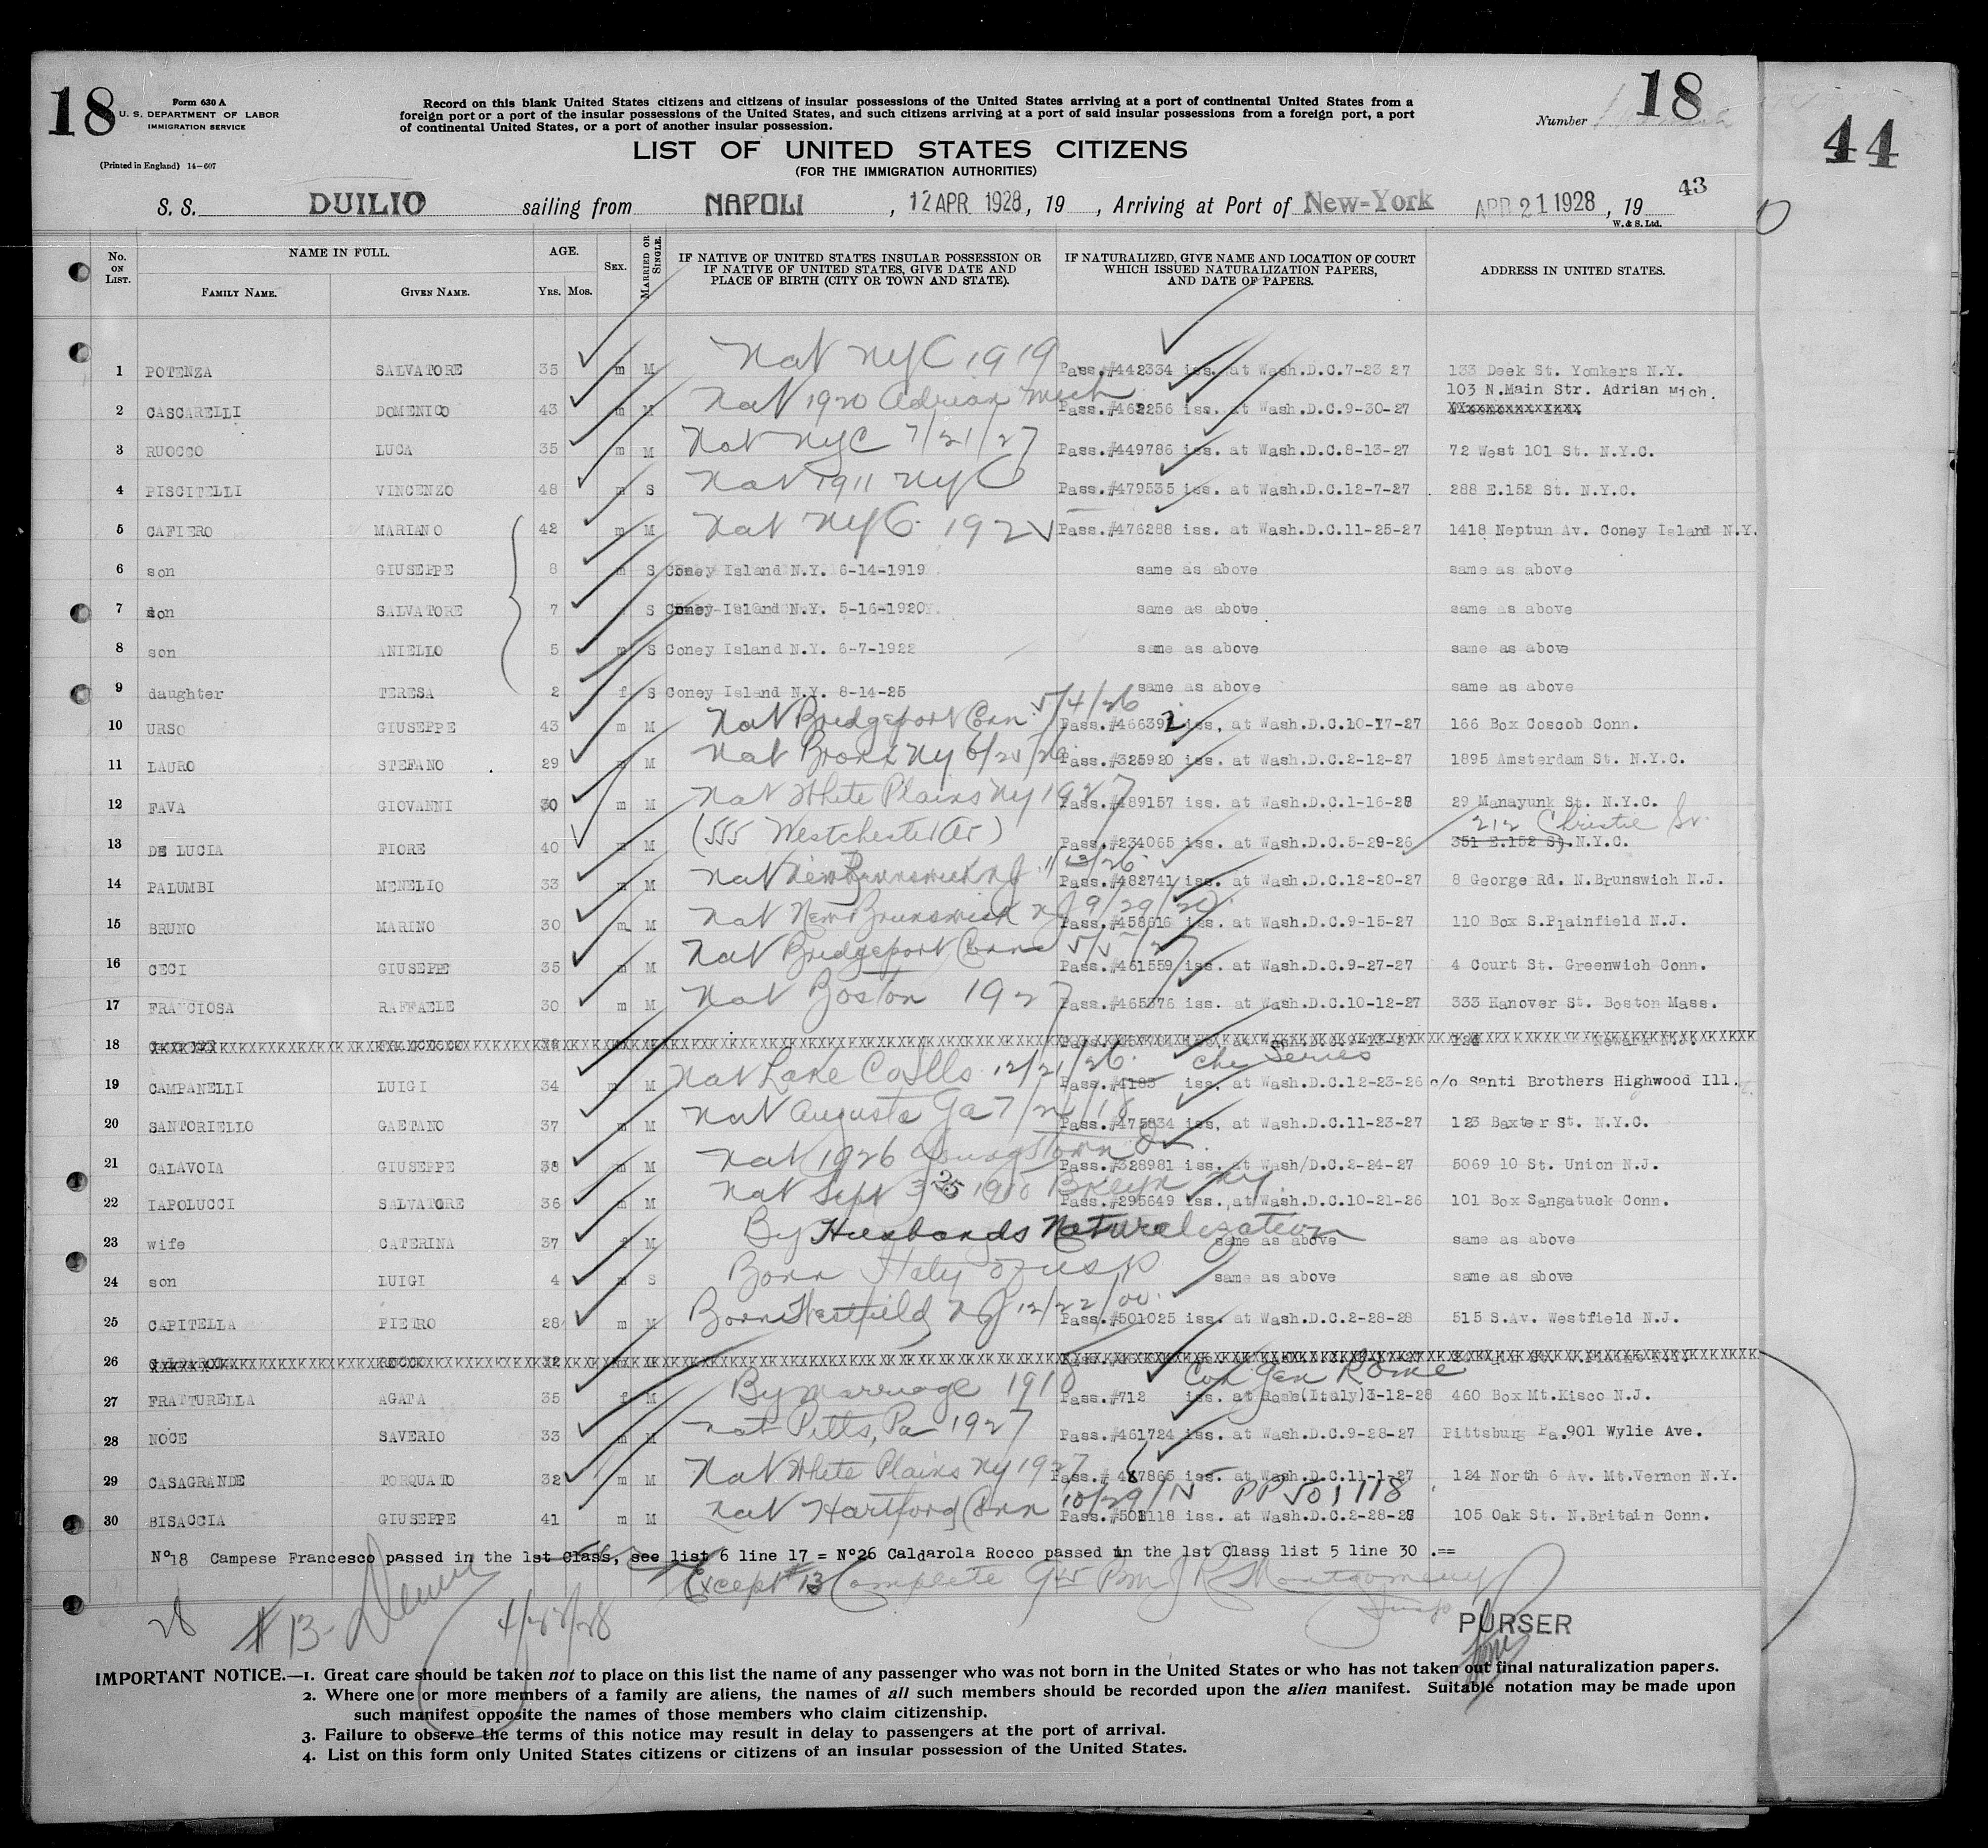 18
Form 630 A
U. S. DEPARTMENT OF LABOR
IMMIGRATION SERVICE
(Printed in England) 14-607
Record on this blank United States citizens and citizens of insular possessions of the United States arriving at a port of continental United States from a
foreign port or a port of the insular possessions of the United States, and such citizens arriving at a port of said insular possessions from a foreign port, a port
of continental United States, or a port of another insular possession.
Number 18
44
LIST OF UNITED STATES CITIZENS
(FOR THE IMMIGRATION AUTHORITIES)
43
S. S. DUILIO sailing from NAPOLI, 12 APR 1928, 19 , Arriving at Port of New-York APR 21 1928, 19
W. & S. Ltd.
No. ON LIST. NAME IN FULL. FAMILY NAME. GIVEN NAME. AGE. YRS. MOS. SEX. MARRIED OR SINGLE. IF NATIVE OF UNITED STATES INSULAR POSSESSION OR IF NATIVE OF UNITED STATES, GIVE DATE AND PLACE OF BIRTH (CITY OR TOWN AND STATE). IF NATURALIZED, GIVE NAME AND LOCATION OF COURT WHICH ISSUED NATURALIZATION PAPERS, AND DATE OF PAPERS. ADDRESS IN UNITED STATES.
1 POTENZA SALVATORE 35 m M Nat NYC 1919 Pass.#442334 iss. at Wash.D.C.7-23 27 133 Deek St. Yomkers N.Y.
103 N.Main Str. Adrian Mich.
2 CASCARELLI DOMENICO 43 m M Nat 1920 Adrian Mich Pass.#462256 iss. at Wash.D.C.9-30-27
3 RUOCCO LUCA 35 m M Nat NYC 7/21/27 Pass.#449786 iss. at Wash.D.C.8-13-27 72 West 101 St. N.Y.C.
4 PISCITELLI VINCENZO 48 m S Nat 1911 NYC Pass.#479535 iss. at Wash.D.C.12-7-27 288 E.152 St. N.Y.C.
5 CAFIERO MARIANO 42 m M Nat NYC 1925 Pass.#476288 iss. at Wash.D.C.11-25-27 1418 Neptun Av. Coney Island N.Y.
6 son GIUSEPPE 8 m S Coney Island N.Y. 6-14-1919 same as above same as above
7 son SALVATORE 7 S Coney Island N.Y. 5-16-1920 same as above same as above
8 son ANIELLO 5 m S Coney Island N.Y. 6-7-1922 same as above same as above
9 daughter TERESA 2 f S Coney Island N.Y. 8-14-25 same as above same as above
10 URSO GIUSEPPE 43 m M Nat Bridgeport Conn 5/4/26 Pass.#466392 iss. at Wash.D.C.10-17-27 166 Box Coscob Conn.
11 LAURO STEFANO 29 m M Nat Bronx NY 6/25/26 Pass.#325920 iss. at Wash.D.C.2-12-27 1895 Amsterdam St. N.Y.C.
12 FAVA GIOVANNI 30 m M Nat White Plains NY 1927 Pass.#489157 iss. at Wash.D.C.1-16-28 29 Manayunk St. N.Y.C.
212 Christie St.
13 DE LUCIA FIORE 40 m M (555 Westchester Av) Pass.#234065 iss. at Wash.D.C.5-29-26 351 E.152 St.N.Y.C.
14 PALUMBI MENELIO 33 m M Nat New Brunswick NJ Pass.#482741 iss. at Wash.D.C.12-20-27 8 George Rd. N.Brunswich N.J.
15 BRUNO MARINO 30 m M Nat New Brunswick NJ 9/29/20 Pass.#458616 iss. at Wash.D.C.9-15-27 110 Box S.Plainfield N.J.
16 CECI GIUSEPPE 35 m M Nat Bridgeport Conn 5/5/27 Pass.#461559 iss. at Wash.D.C.9-27-27 4 Court St. Greenwich Conn.
17 FRANCIOSA RAFFAELE 30 m M Nat Boston 1927 Pass.#465376 iss. at Wash.D.C.10-12-27 333 Hanover St. Boston Mass.
18
Series
19 CAMPANELLI LUIGI 34 m M Nat Lake Co Ills 12/21/26 Pass.#4183 iss. at Wash.D.C.12-23-26 c/o Santi Brothers Highwood Ill.
20 SANTORIELLO GAETANO 37 m M Nat Augusta Ga 7/21/18 Pass.#475834 iss. at Wash.D.C.11-23-27 123 Baxter St. N.Y.C.
21 CALAVOIA GIUSEPPE 38 m M Nat 1926 Youngstown O Pass.#328981 iss. at Wash/D.C.2-24-27 5069 10 St. Union N.J.
22 IAPOLUCCI SALVATORE 36 m M Nat Sept 1910 Bklyn NY Pass.#295649 iss. at Wash.D.C.10-21-26 101 Box Sangatuck Conn.
23 wife CATERINA 37 f M By Husbands Naturalization same as above same as above
24 son LUIGI 4 m S Born Italy of USP same as above same as above
25 CAPITELLA PIETRO 28 m M Born Westfield NJ 12/22/00 Pass.#501025 iss. at Wash.D.C.2-28-28 515 S.Av. Westfield N.J.
26
Con Gen Rome
27 FRATTURELLA AGATA 35 f M By marriage 1910 Pass.#712 iss. at Rome(Italy)3-12-28 460 Box Mt.Kisco N.J.
28 NOCE SAVERIO 33 m M Nat Pitts, Pa 1927 Pass.#461724 iss. at Wash.D.C.9-28-27 Pittsburg Pa.901 Wylie Ave.
29 CASAGRANDE TORQUATO 32 m M Nat White Plains NY 1927 Pass.# 467865 iss. at Wash.D.C.11-1-27 124 North 6 Av. Mt.Vernon N.Y.
10/29/15 PP 501118
30 BISACCIA GIUSEPPE 41 m M Nat Hartford Conn Pass.#501118 iss. at Wash.D.C.2-28-28 105 Oak St. N.Britain Conn.
N°18 Campese Francesco passed in the 1st Class, see list 6 line 17 = N°26 Caldarola Rocco passed in the 1st Class list 5 line 30 .==
Except #13 Complete J R Montgomery
28 #13- 4/22/28
PURSER
IMPORTANT NOTICE.—1. Great care should be taken not to place on this list the name of any passenger who was not born in the United States or who has not taken out final naturalization papers.
2. Where one or more members of a family are aliens, the names of all such members should be recorded upon the alien manifest. Suitable notation may be made upon
such manifest opposite the names of those members who claim citizenship.
3. Failure to observe the terms of this notice may result in delay to passengers at the port of arrival.
4. List on this form only United States citizens or citizens of an insular possession of the United States.